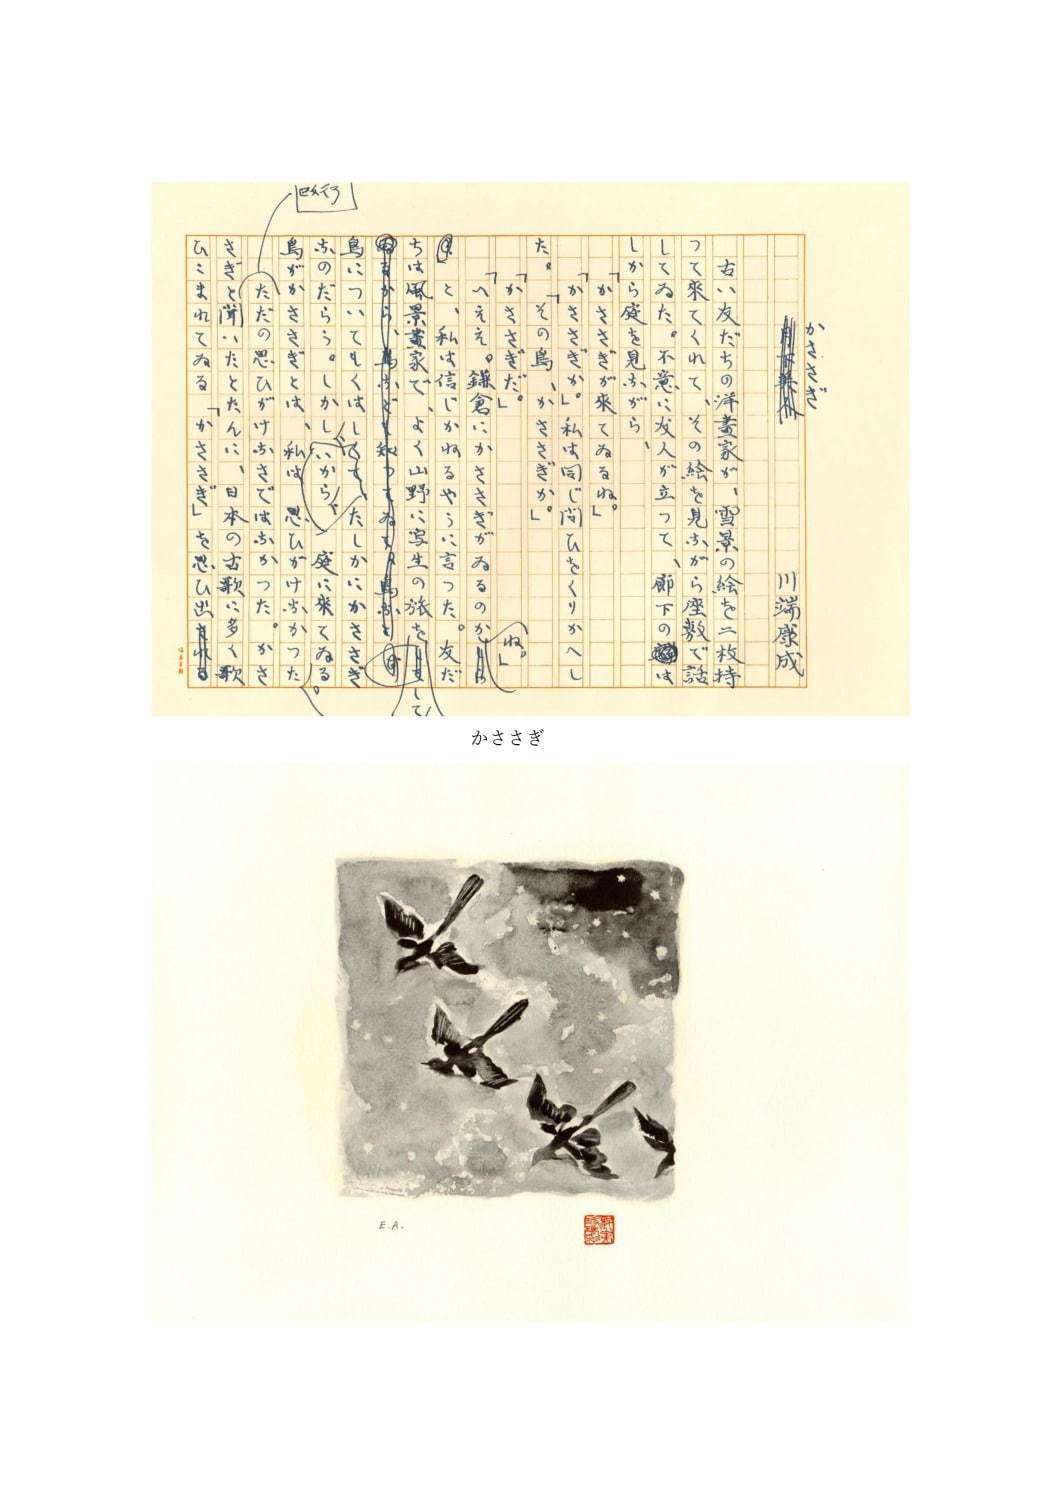 かささぎ
川端康成
古い友だちの洋畫家が、雪景の絵を二枚持
つて來てくれて、その絵を見ながら座敷で話
してゐた。不意に友人が立つて、廊下のは
しから庭を見ながら、
「かささぎが來てゐるね。」
「かささぎか。」私は同じ問ひをくりかへし
た。「その鳥、かささぎか。」
「かささぎだ。」
「へええ。鎌倉にかささぎがゐるのかね。」
と、私は信じかねるやうに言つた。友だ
ちは風景畫家で、よく山野に写生の旅をして
鳥についてもくはし たしかにかささぎ
なのだらう。しかし 庭に来てゐる
鳥がかささぎとは、私は思ひがけなかつた。
改行
ただの思ひがけなさではなかつた。かさ
さぎと聞いたとたんに、日本の古歌に多く歌
ひこまれてゐる「かささぎ」を思ひ出
かささぎ
E.A.